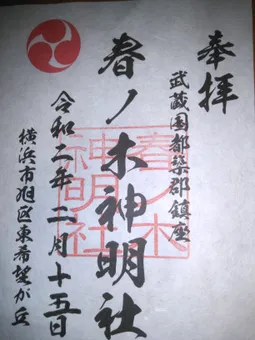 奉拝
武蔵國都築郡鎮座
春ノ木神明社
春ノ木
神明社
令和二年二月十五日
横浜市旭区東希望が丘